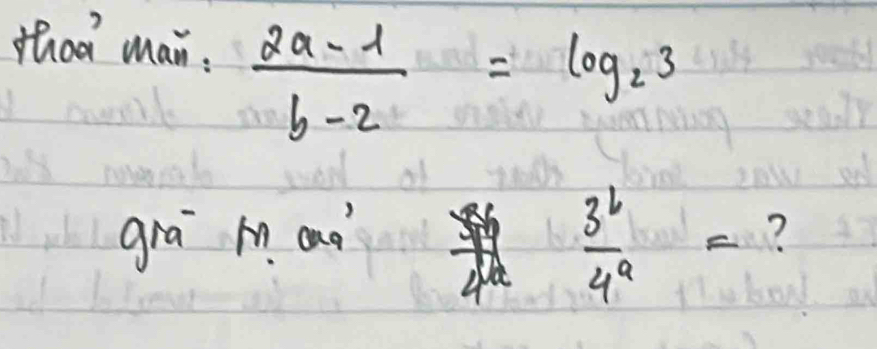 thoả mãn: \frac{2a-1}{b-2} = log₂3
giá trị của \frac{3^b}{4^a} = ?